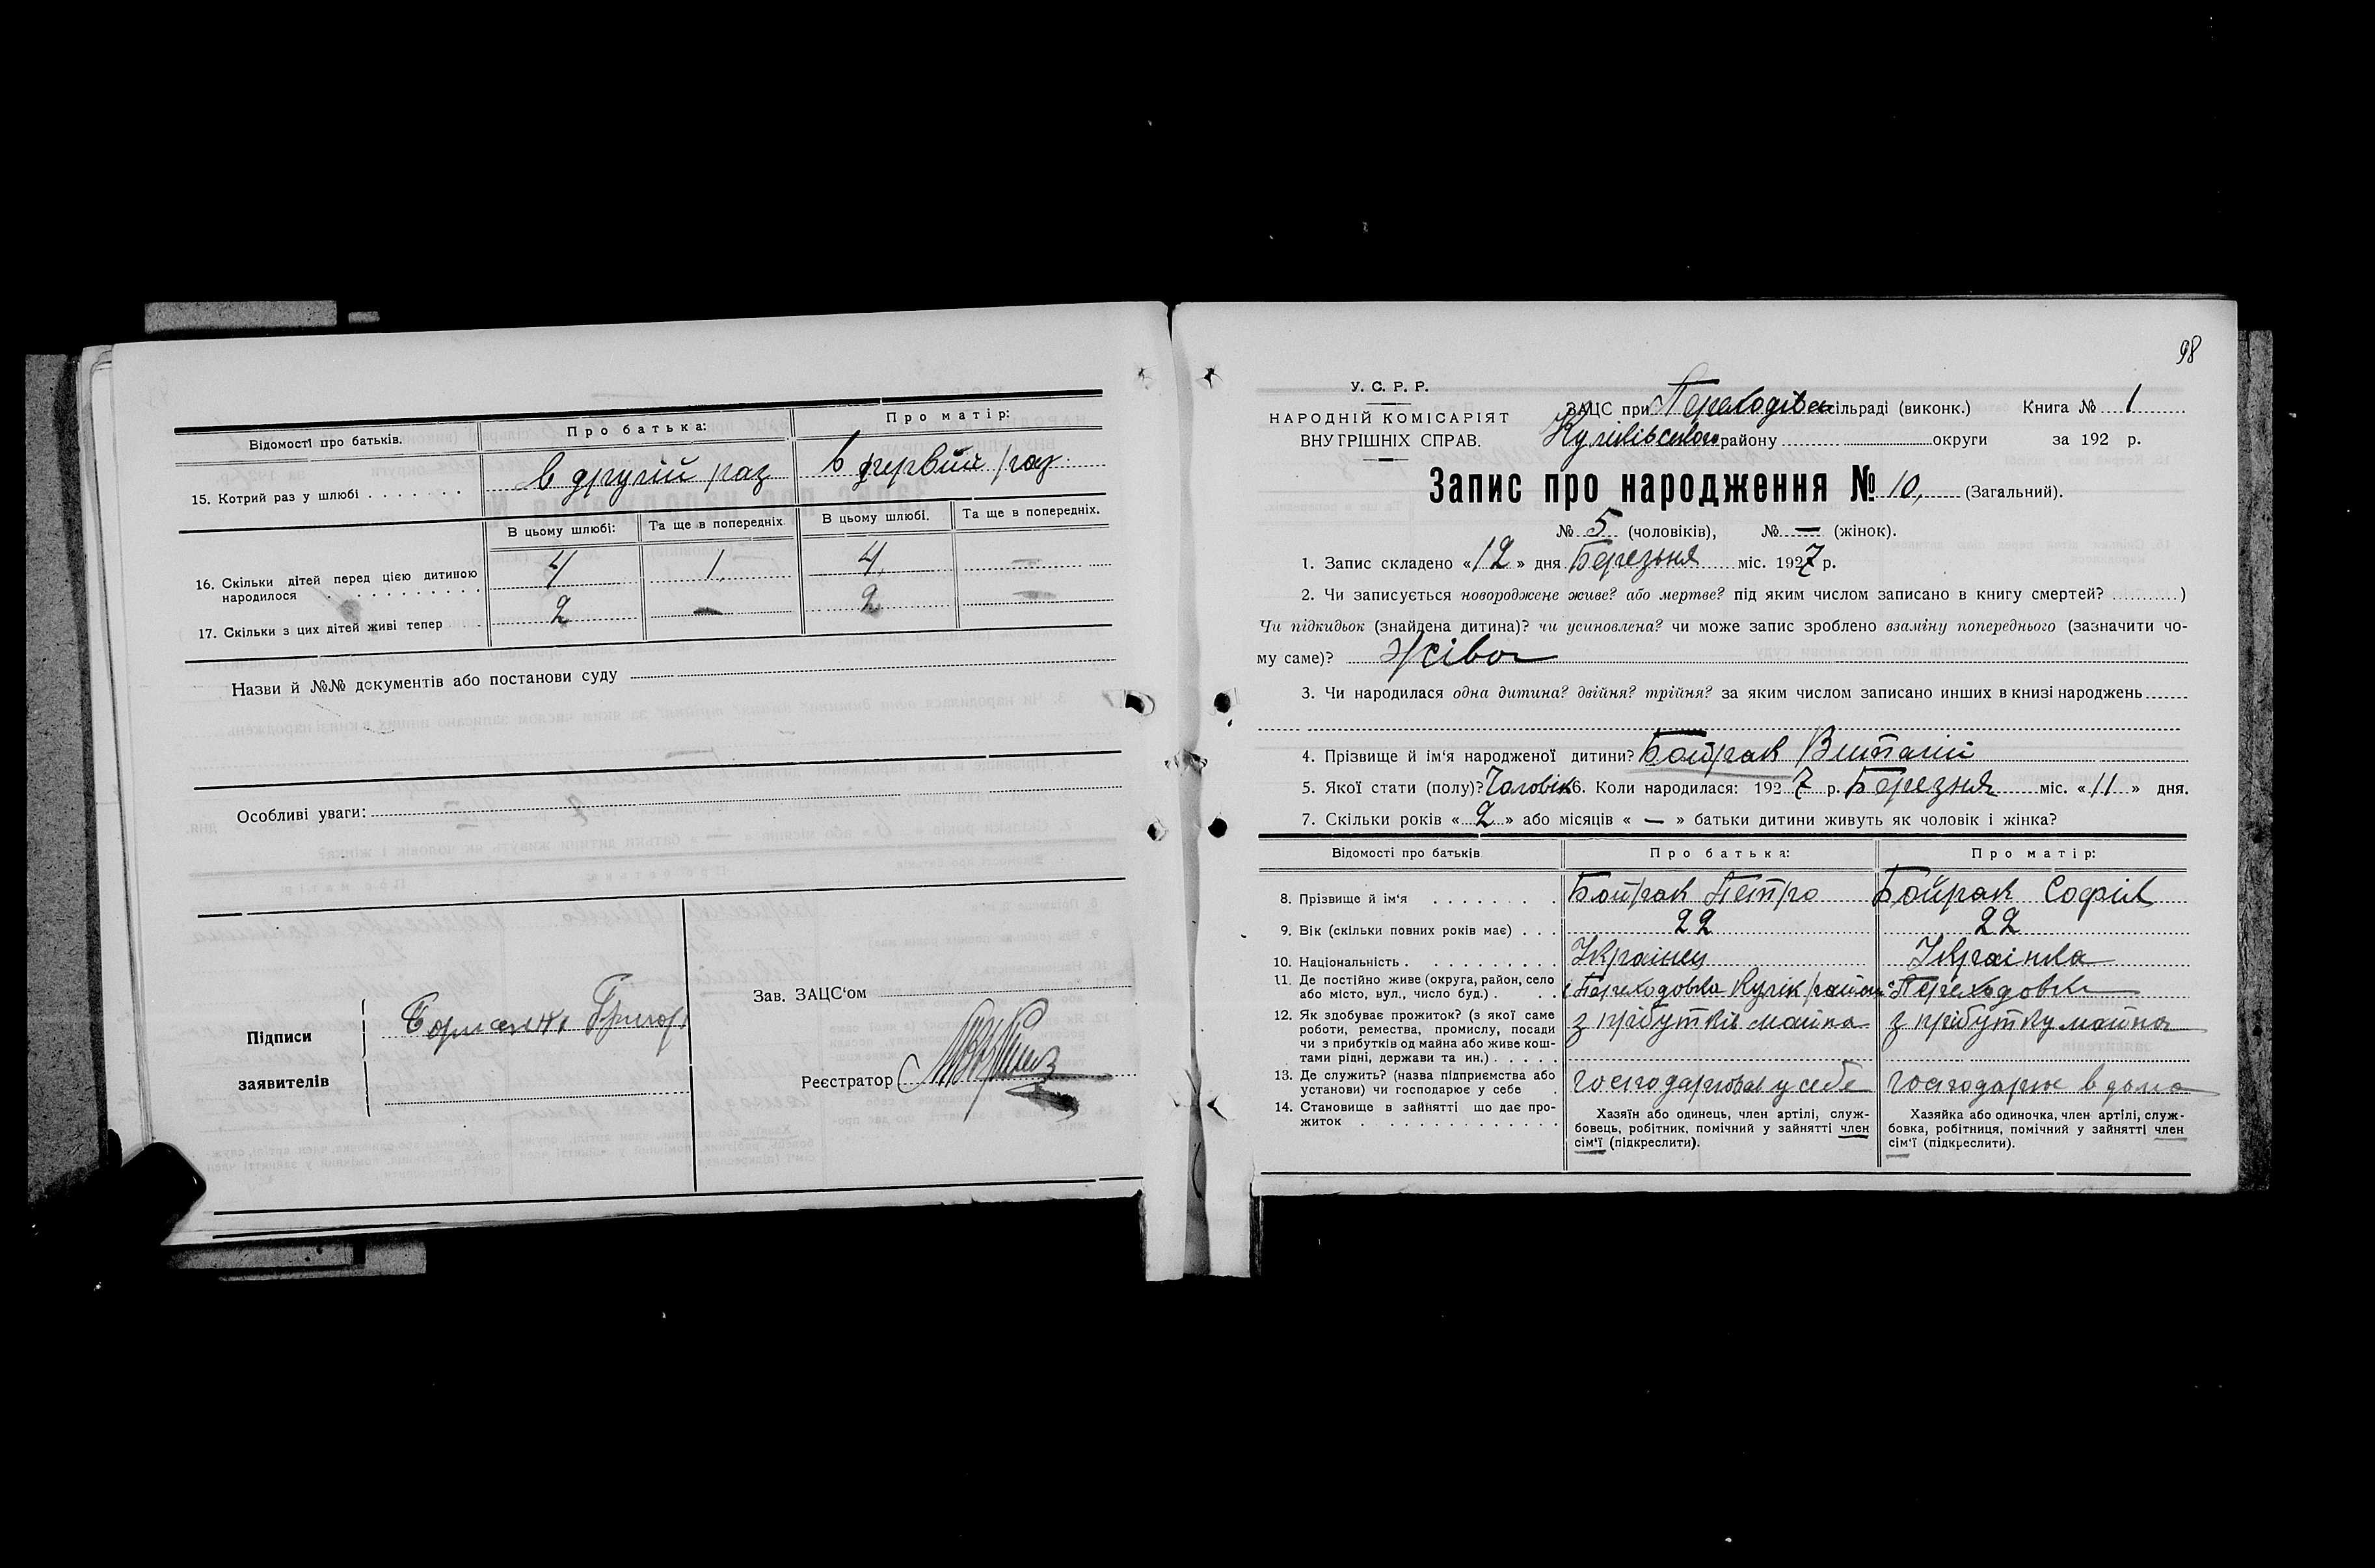 Відомості про батьків. Про батька: Про матір:
15. Котрий раз у шлюбі . . . . . . . в другій раз в первий раз
В цьому шлюбі: Та ще в попередніх. В цьому шлюбі. Та ще в попередніх.
16. Скільки дітей перед цією дитиною
народилося . . . . . . . . . . 4 1. 4. —
17. Скільки з цих дітей живі тепер 2 — 2 —
Назви й №№ документів або постанови суду
Особливі уваги:
Підписи
заявителів
Борисенко Григор.
Зав. ЗАЦС'ом
Реєстратор
98
У. С. Р. Р.
НАРОДНІЙ КОМІСАРІЯТ
ВНУТРІШНІХ СПРАВ.
ЗАЦС при Переходівск сільраді (виконк.) Книга № 1
Куликівського району округи за 192 р.
Запис про народження № 10, (Загальний).
№ 5 (чоловіків), № — (жінок).
1. Запис складено « 12 » дня Березьня міс. 1927 р.
2. Чи записується новороджене живе? або мертве? під яким числом записано в книгу смертей? )
Чи підкидьок (знайдена дитина)? чи усиновлена? чи може запис зроблено взаміну попереднього (зазначити чо-
му саме)? Жіва
3. Чи народилася одна дитина? двійня? трійня? за яким числом записано инших в книзі народжень
4. Прізвище й ім'я народженої дитини? Байрак Виталій
5. Якої стати (полу)? Чаловік 6. Коли народилася: 1927 р. Березня міс. « 11 » дня.
7. Скільки років « 2 » або місяців « — » батьки дитини живуть як чоловік і жінка?
Відомості про батьків Про батька: Про матір:
8. Прізвище й ім'я . . . . . . . . Байрак Петро Байрак Софія
9. Вік (скільки повних років має) . . . 22 22
10. Національність . . . . . . . . . . Украінец Украінка
11. Де постійно живе (округа, район, село
або місто, вул., число буд.) . . . Переходовка Кулік район Переходовка
12. Як здобуває прожиток? (з якої саме
роботи, ремества, промислу, посади
чи з прибутків од майна або живе кош-
тами рідні, держави та ин.) . . . . . з прібутків майна з прібутку майна
13. Де служить? (назва підприємства або
установи) чи господарює у себе . у себе господарює в дома
14. Становище в зайнятті що дає про-
житок . . . . . . . . . . . . .
Хазяїн або одинець, член артілі, служ-
бовець, робітник, помічний у зайнятті член
сім'ї (підкреслити).
Хазяйка або одиночка, член артілі, служ-
бовка, робітниця, помічний у зайнятті член
сім'ї (підкреслити).